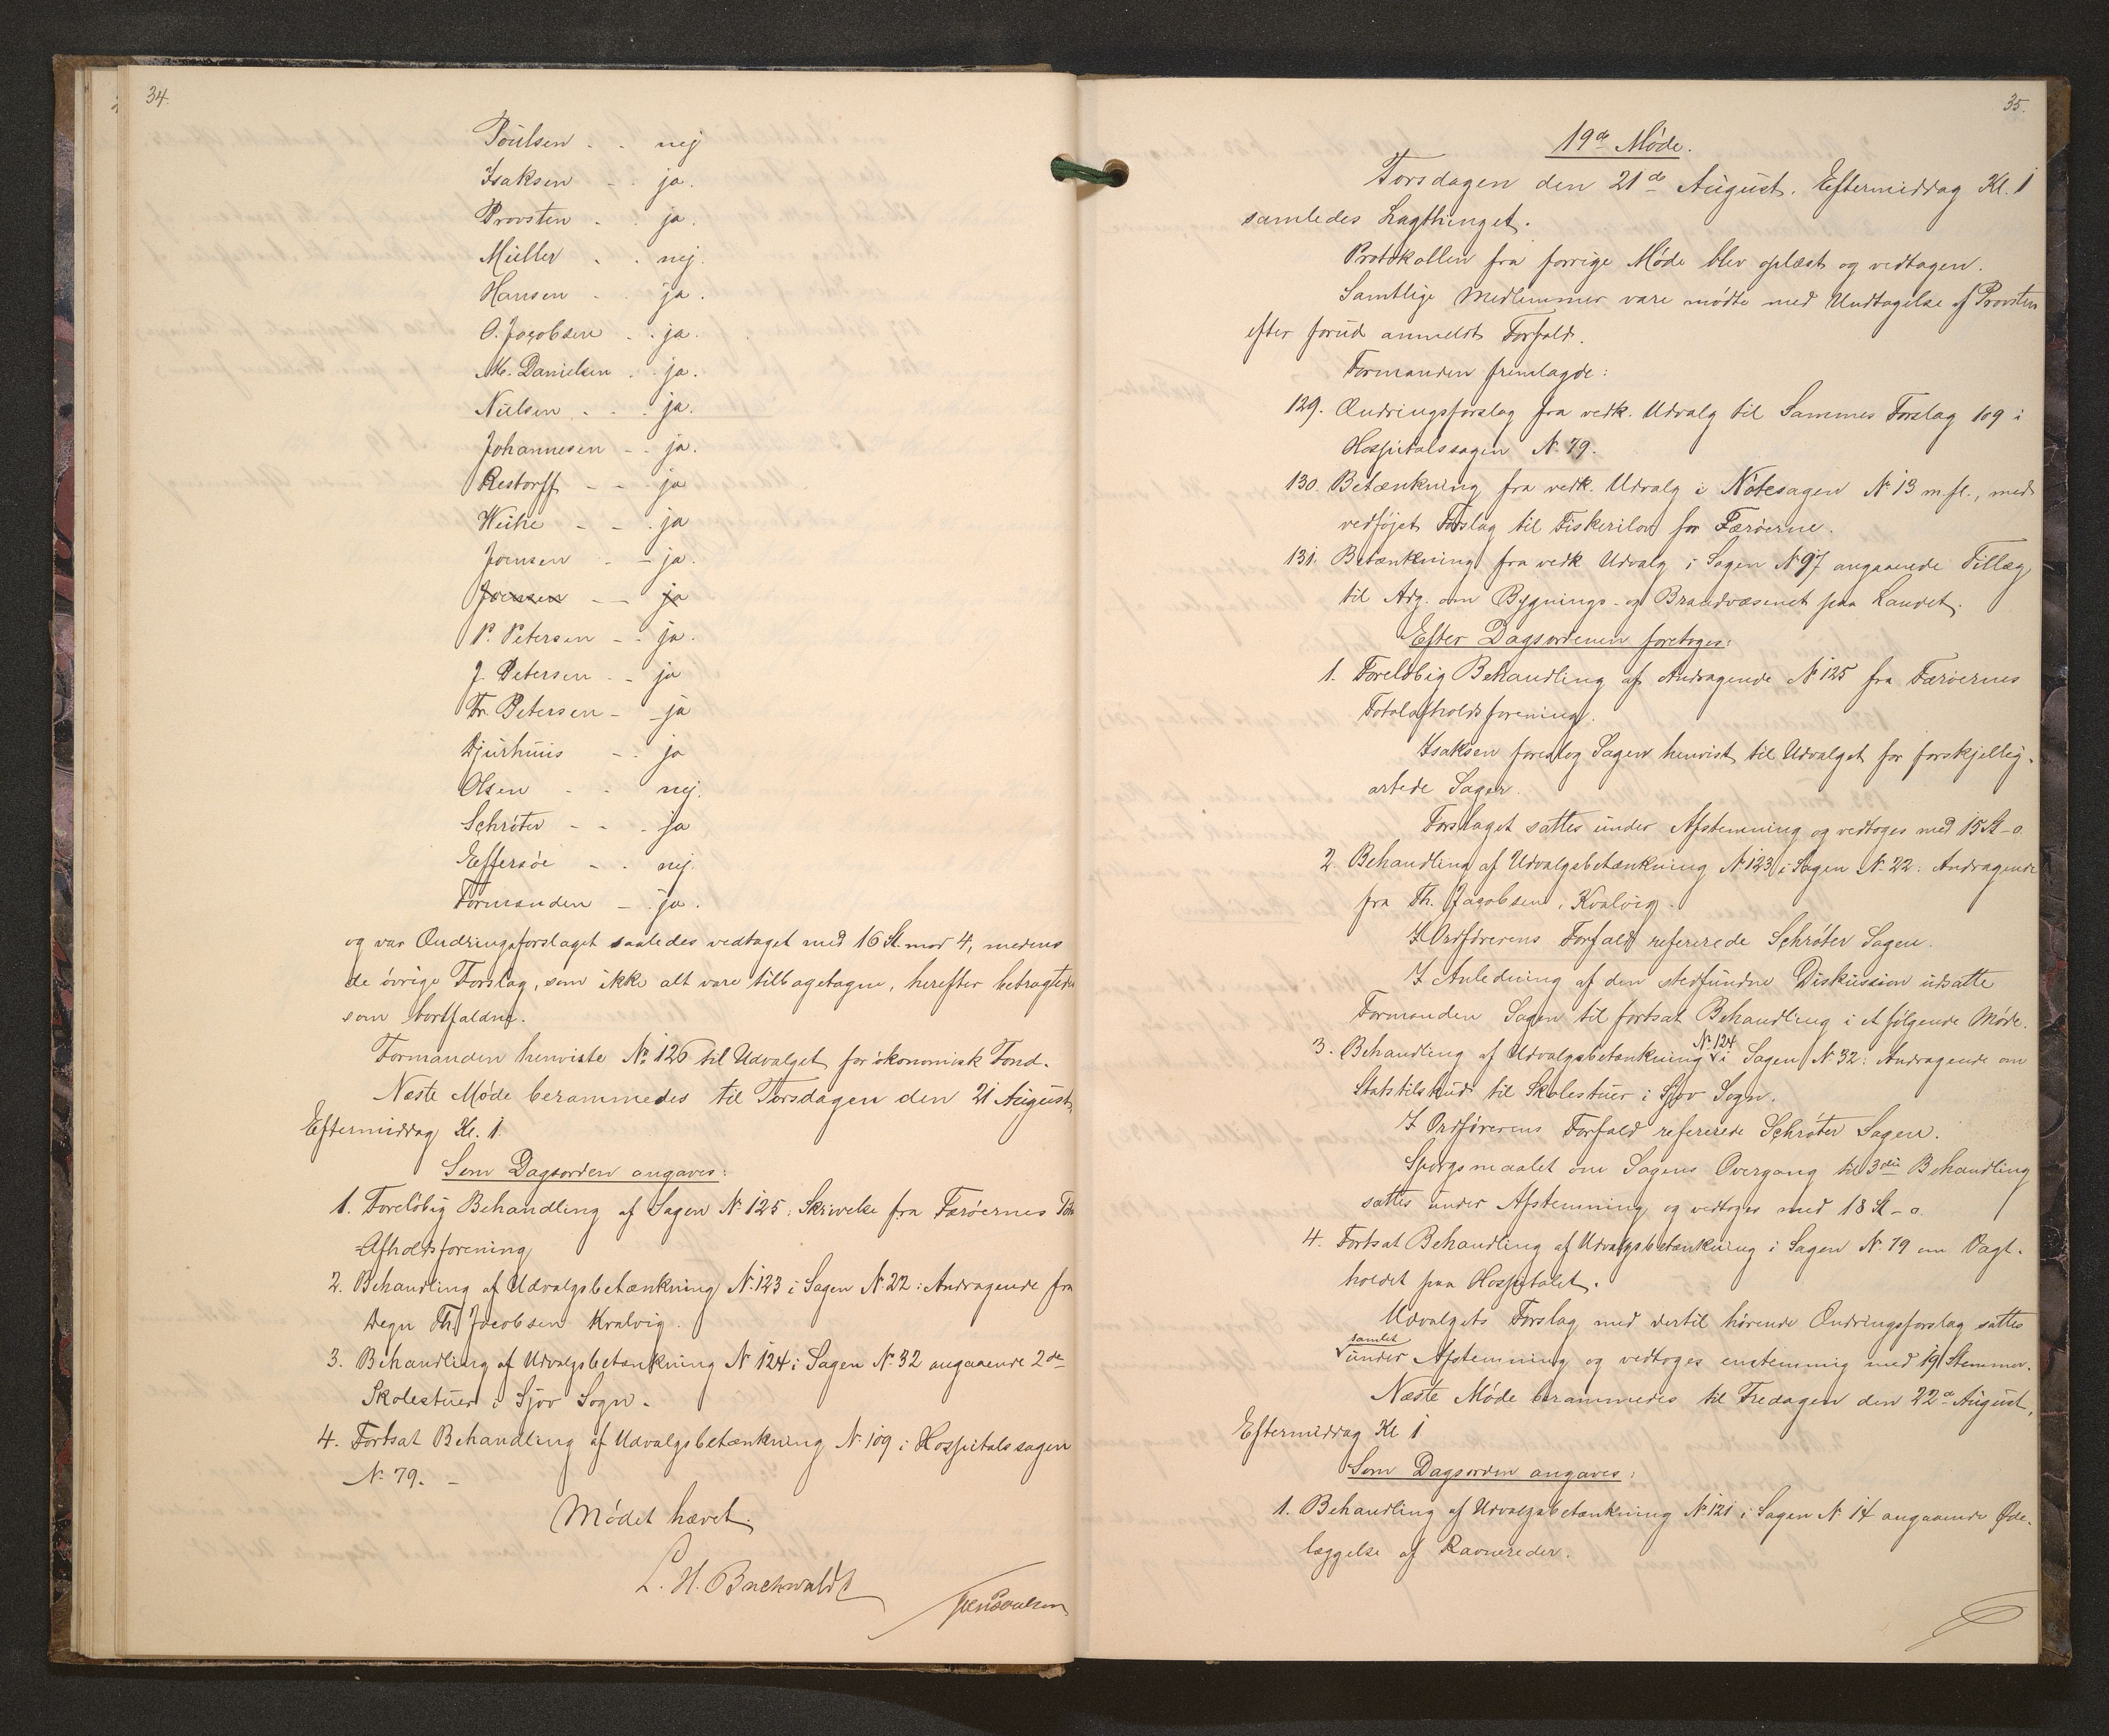 34.
Poulsen - - nej
Isaksen - - ja.
Provsten - - ja.
Müller - - nej.
Hansen - - ja.
O. Jacobsen - - ja.
M. Danielsen - - ja.
Nielsen - - - ja.
Johannesen - - ja.
Restorff - - - ja
Weihe - - - ja
Joensen - - ja.
Joensen - - ja
P. Petersen - - ja.
J. Petersen - - ja
Fr. Petersen - - ja
Djurhuus - - ja
Olsen - - nej.
Schrøter - - - ja
Effersøe - - nej.
Formanden - - ja.
og var Ændringsforslaget saaledes vedtaget med 16 St. mod 4, medens
de øvrige Forslag, som ikke alt vare tilbagetagne, herefter betragtedes
som bortfaldne.
Formanden henviste Nº 126 til Udvalget for økonomisk Fond.
Næste Møde berammedes til Torsdagen den 21 August,
Eftermiddag Kl. 1.
Som Dagsorden angaves:
1. Foreløbig Behandling af Sagen Nº 125: Skrivelse fra Færøernes Total
Afholdsforening
2. Behandling af Udvalgsbetænkning Nº 123 i Sagen Nº 22: Andragende fra
Degn Th. Jacobsen Kvalvig.
3. Behandling af Udvalgsbetænkning Nº 124 i Sagen Nº 32 angaaende 2de
Skolestuer i Sjov Sogn.
4. Fortsat Behandling af Udvalgsbetænkning Nº 109 i Hospitalssagen
Nº 79. -
Mødet hævet.
L. H. Buchwaldt
35.
19de Møde.
Torsdagen den 21de August. Eftermiddag Kl. 1
samledes Lagthinget.
Protokollen fra forrige Møde blev oplæst og vedtagen.
Samtlige Medlemmer vare mødte med Undtagelse af Provsten
efter forud anmeldt Forfald.
Formanden fremlagde:
129. Ændringsforslag fra vedk. Udvalg til Sammes Forslag 109 i
Hospitalssagen Nº 79.
130. Betænkning fra vedk. Udvalg i Notesagen Nº 13 m.fl., med
vedføjet Forslag til Fiskerilov for Færøerne.
131. Betænkning fra vedk Udvalg i Sagen Nº 97 angaaende Tillæg
til Adg. om Bygnings- og Brandvæsenet paa Landet.
Efter Dagsordenen foretoges:
1. Foreløbig Behandling af Andragende Nº 125 fra Færøernes
Totalafholdsforening.
Isaksen foreslog Sagen henvist til Udvalget for forskjellig-
artede Sager.
Forslaget sattes under Afstemning og vedtoges med 15 St - 0.
2. Behandling af Udvalgsbetænkning Nº 123 i Sagen Nº 22: Andragende
fra Th. Jacobsen, Kvalvig.
I Ordførerens Forfald refererede Schrøter Sagen.
I Anledning af den stedfundne Diskussion udsatte
Formanden Sagen til fortsat Behandling i et følgende Møde.
3. Behandling af Udvalgsbetænkning Nº 124 i Sagen Nº 32: Andragende om
Statstilskud til Skolestuer i Sjov Sogn.
I Ordførerens Forfald refererede Schrøter Sagen.
Spørgsmaalet om Sagens Overgang til 3die Behandling
sattes under Afstemning og vedtoges med 18 St - 0.
4. Fortsat Behandling af Udvalgsbetænkning i Sagen Nº 79 om Vagt-
holdet paa Hospitalet.
Udvalgets Forslag med dertil hørende Ændringsforslag sattes
samlet under Afstemning og vedtoges enstemmig med 19 Stemmer.
Næste Møde berammedes til Fredagen den 22de August,
Eftermiddag Kl 1
Som Dagsorden angaves:
1. Behandling af Udvalgsbetænkning Nº 121 i Sagen Nº 14 angaaende Øde-
læggelse af Ravnereder.